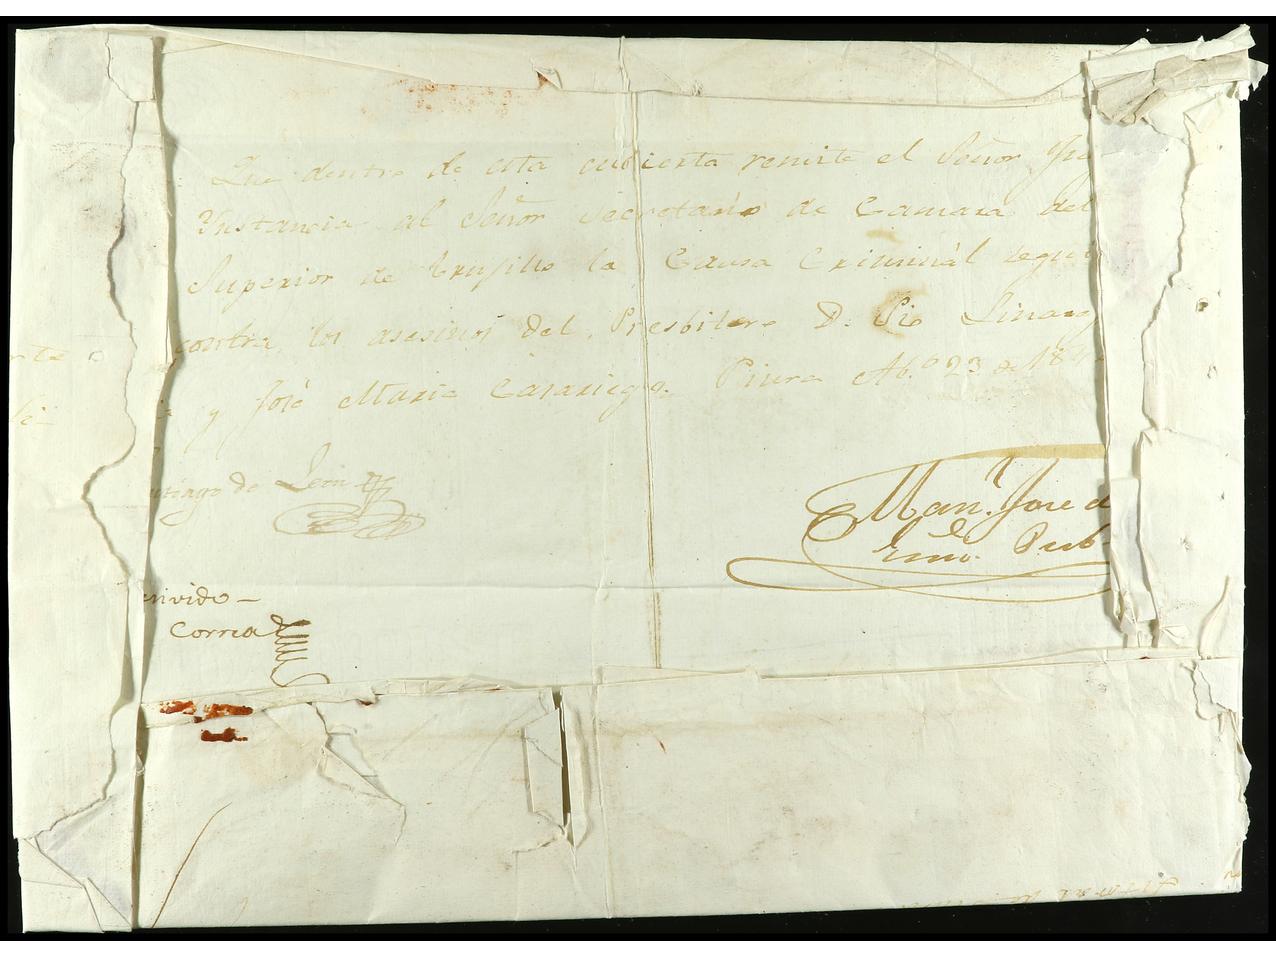 Que dentro de esta cubierta remite el Señor Jue
Ynstancia al Señor Secretario de Camara del
Superior de Trujillo la Causa Criminal segui
contra los asesinos del Presbitero D. Pio Linar
y José Maria Casariego. Piura Ab.º 23 de 184
rte
ntiago de Leon
Man.l Jose d
Pub
Correa